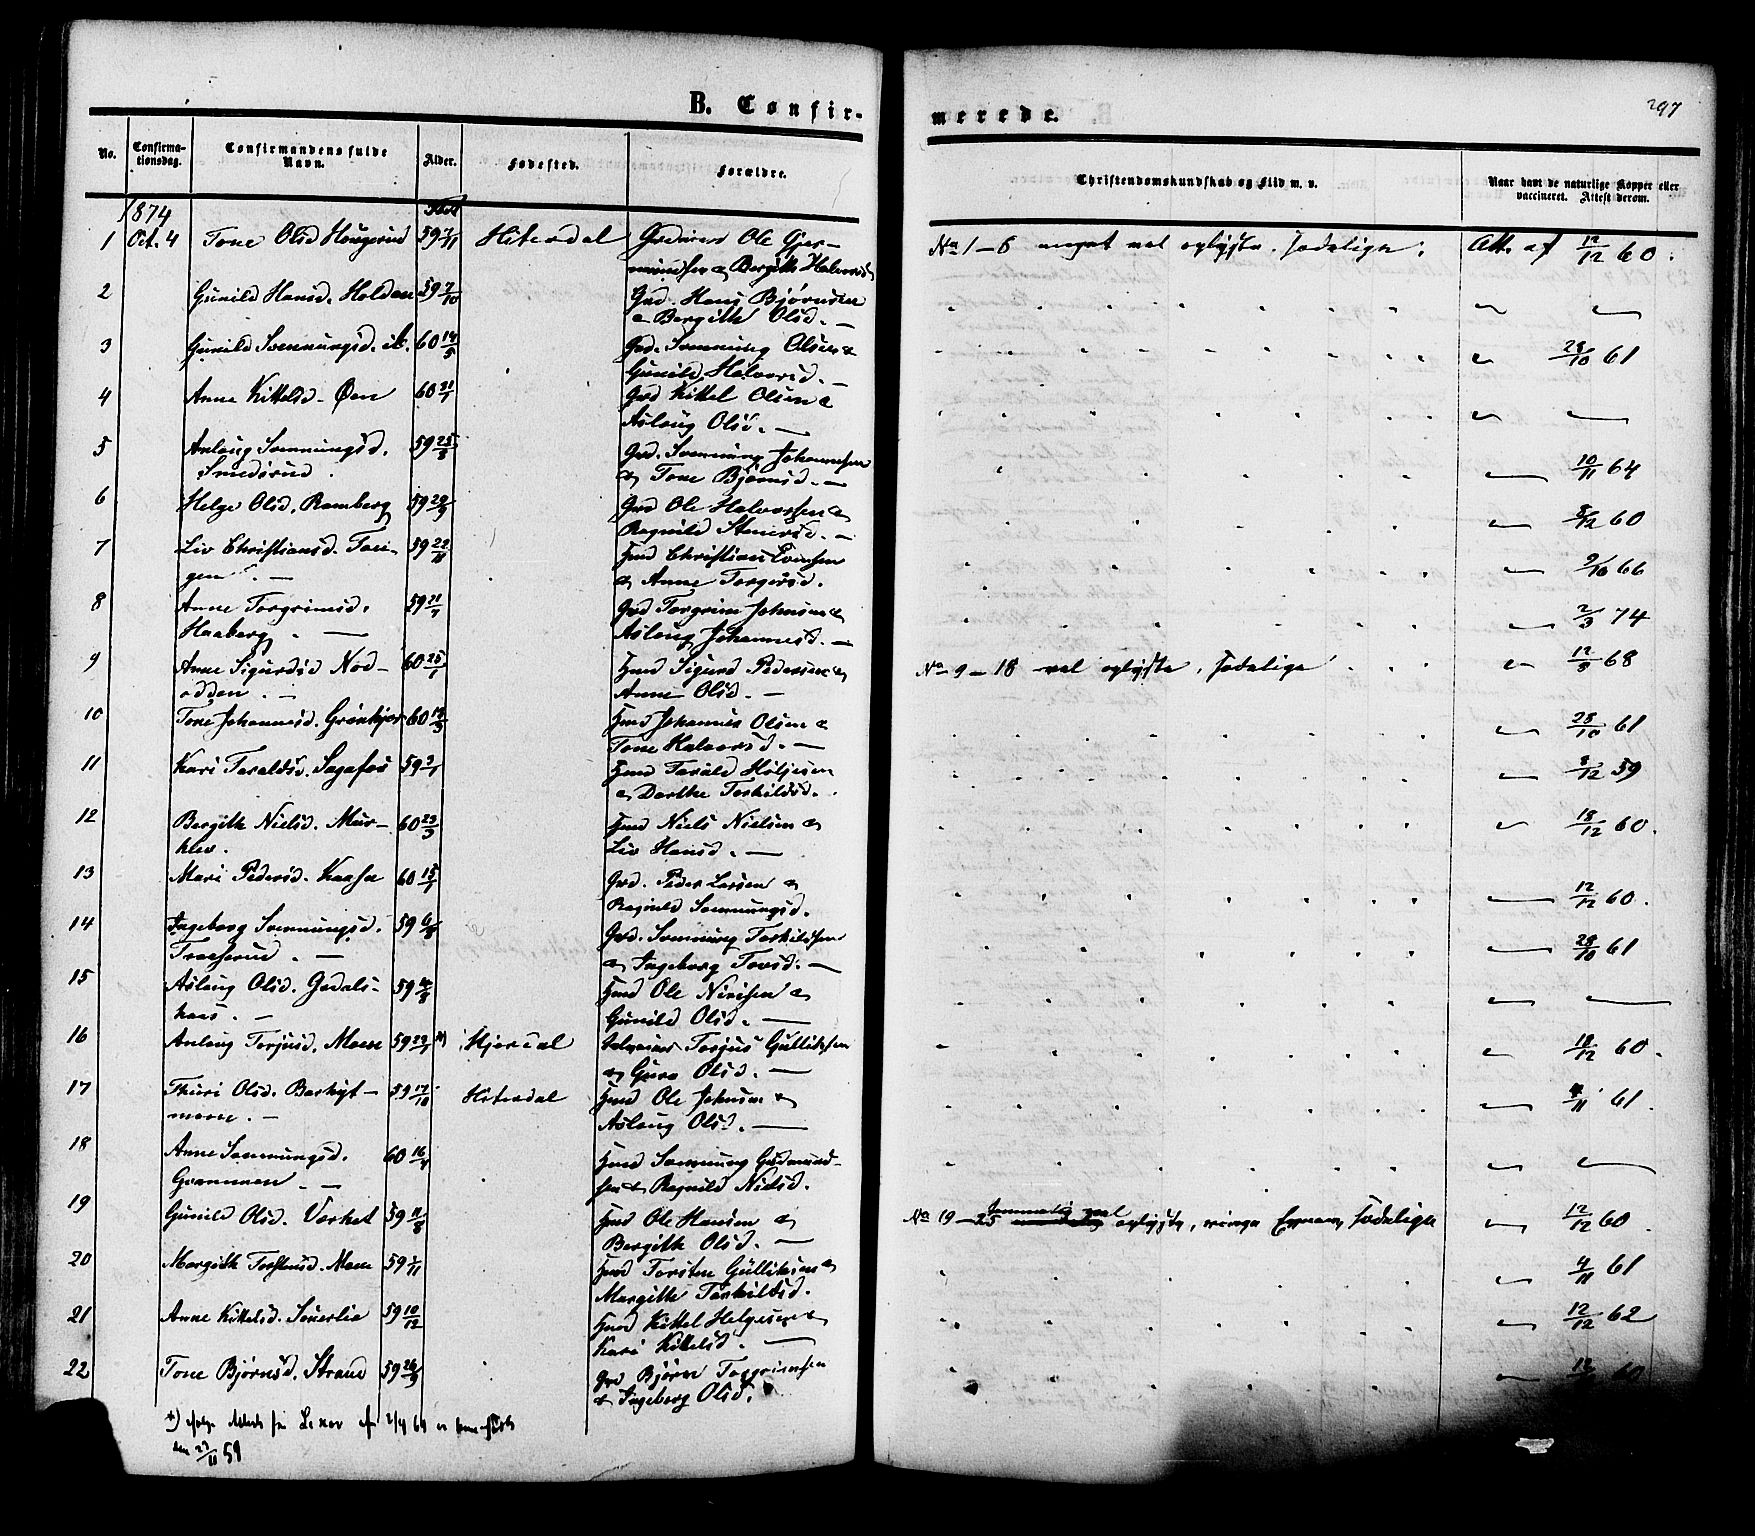 B. Confir-
merede.
297
No.
Confirma-
tionsdag.
Confirmandens fulde
Navn.
Alder.
Fødested.
Forældre.
Christendomskundskab og Flid m. v.
Naar havt de naturlige Kopper eller
vaccineret. Attest derom.
1874
1 Oct. 4 Tone Olsd 59 7/11 Hiterdal Gardmand Ole Gjer-
mundsen & Bergith Halvorsd
No 1-6 meget vel oplyste, sædelige. Att. af 12/12 60.
2 Gunild Hansd. Holdan 59 7/10 Grd. Hans Bjørnsen
& Bergith Olsd. —
3 Gunild Svennungsd. ib. 60 14/5 Grd. Svennung Olsen &
Gunild Halvorsd. —
28/10 61
4 Anne Kittelsd. Øen 60 21/1 Grd Kittel Olsen &
Aslaug Olsd. —
5 Anlaug Svennungsd. 59 25/8 Grd. Svennung Johannesen
Smedsrud. & Tone Bjørnsd. —
10/11 64
6 Helge Olsd. Ramberg 59 29/9 Grd Ole Halvorsen &
Ragnild Steinersd. —
5/12 60
7 Liv Christiansd. Tori- 59 22/11 Hmd Christian Evensen
gen. — & Anne Torgersd.
9/10 66
8 Anne Torgrimsd. 59 21/7 Grd Torgrim Johnsen &
Haaberg. — Aslaug Johannesd. —
2/3 74
9 Anne Sigurdsd Nod- 60 25/1 Hmd Sigurd Pedersen &
odden. — Anne Olsd. —
No 9-18 vel oplyste, sædelige 12/9 68
10 Tone Johannesd. Grønkjær 60 13/3 Hmd Johannes Olsen &
Tone Halvorsd. —
28/10 61
11 Kari Taraldsd. Sagafos 59 3/1 Hmd Tarald Høljesen
& Dorthe Torkildsd.
8/12 59
12 Bergith Nielsd. Mær- 60 23/3 Hmd Niels Nielsen &
klev. Liv Hansd. —
18/12 60.
13 Mari Pedersd. Kaasa 60 15/1 Grd. Peder Larsen &
Ragnild Svennungsd.
12/12 60.
14 Ingeborg Svennungsd. 59 6/8 Grd. Svennung Torkildsen
Træserud. — & Ingeborg Torsd. —
28/10 61
15 Aslaug Olsd. Grdals- 59 Hmd Ole Nirisen &
kaas. — Gunild Olsd. —
16 Anlaug Torjusd. Moen 59 *) Hjerdal Torjus Gulliksen
& Guro Olsd. —
18/12 60.
17 Thuri Olsd. 59 17/10 Hiterdal Hmd Ole Johnsen &
moen. — Aslaug Olsd. —
4/11 61.
18 Anne Svennungsd. 60 16/4 Hmd Svennung Gudmund-
Grannmoen — sen & Ragnild Nielsd.
19 Gunild Olsd. Værket 59 11/8 Hmd Ole Hansen &
Bergith Olsd. —
No 19-25 temmelig vel oplyste, ringe Evner, sædelige 12/12 60
20 Margith Torstensd. Moen 59 1/11 Hmd Torsten Gulliksen &
Margithe Torkildsd.
4/11 61
21 Anne Kittelsd. 59 10/12 Hmd Kittel Helgesen &
Kari Kittelsd. —
12/12 62
22 Tone Bjørnsd. Strand 59 26/9 Grd Bjørn Torgrimsen
& Ingeborg Olsd.
60
*) ifølge Attest fra
den 23/11 59